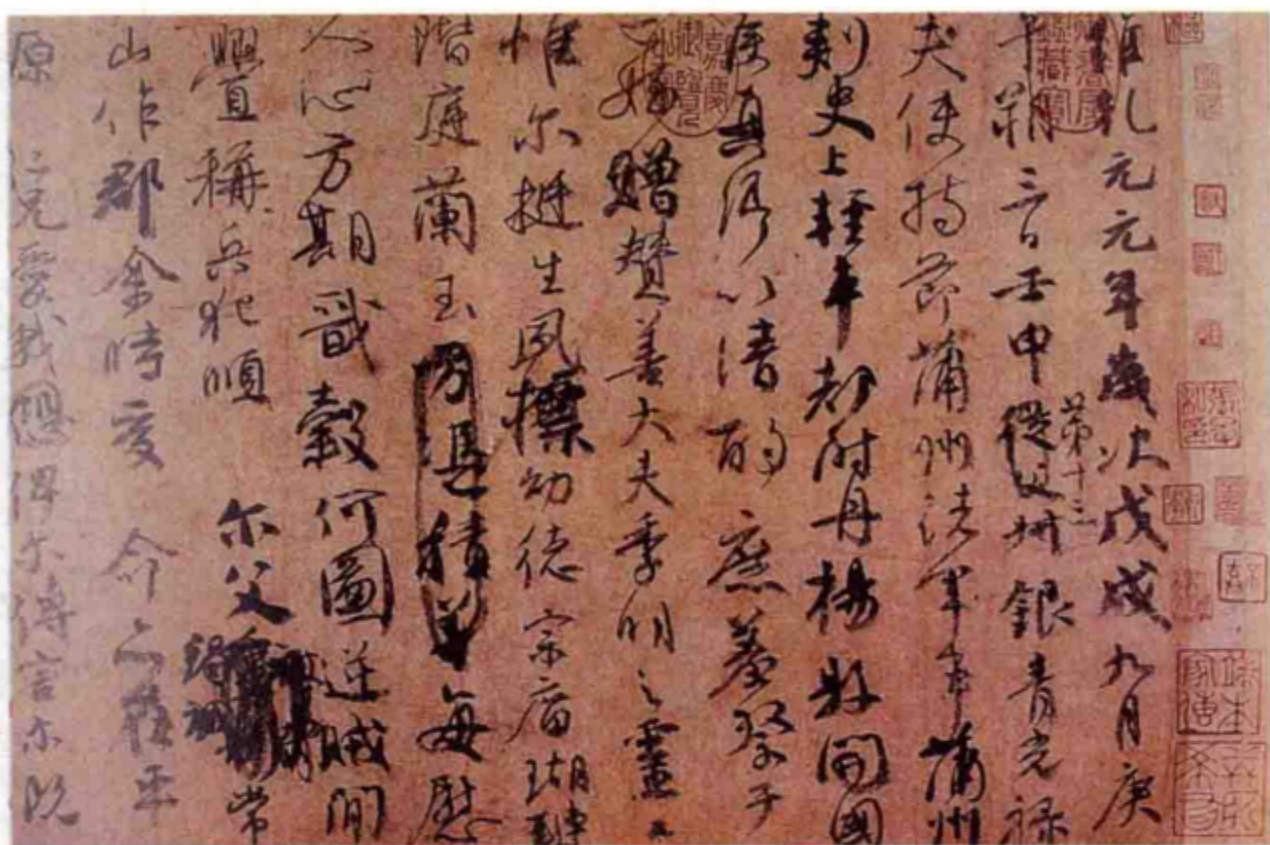 維乾元元年歲次戊戌九月庚
午朔三日壬申第十三從父銀青光祿
夫使持節蒲州諸軍事蒲州
刺史上輕車都尉丹楊縣開國
侯真卿以清酌庶羞祭于
亡姪贈贊善大夫季明之靈曰
惟尔挺生夙標幼德宗廟瑚璉
階庭蘭玉每慰
人心方期戩穀何圖逆賊間
釁稱兵犯順尔父常
山作郡余時受命亦在平
原仁兄愛我俾尔傳言尔既